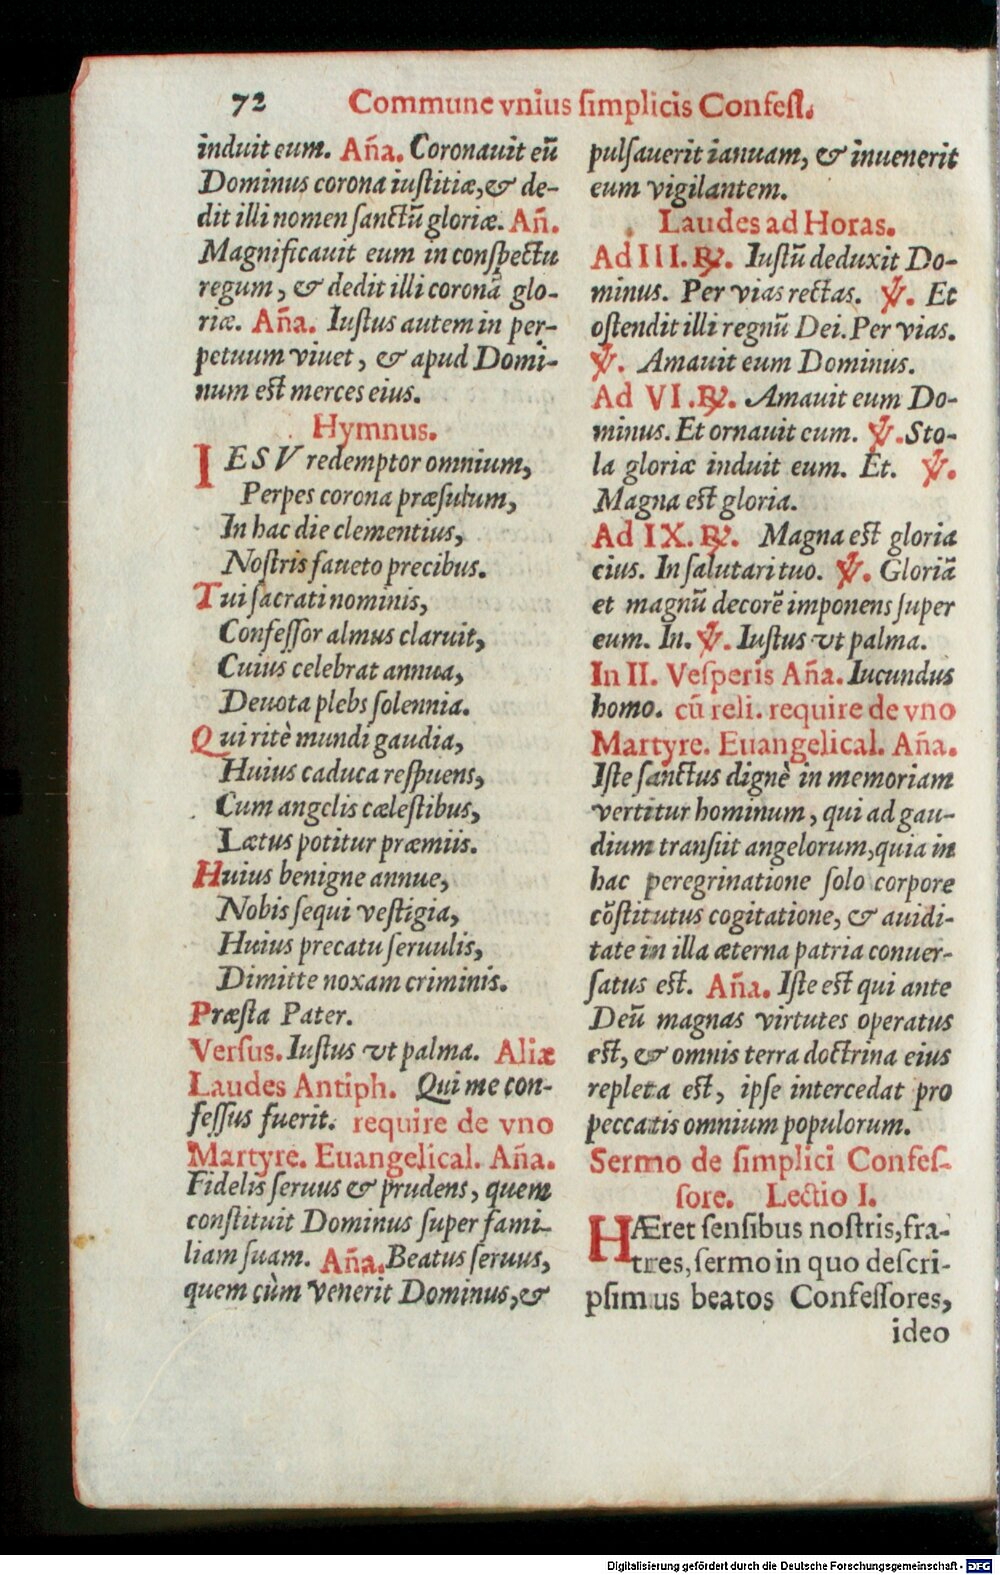 72 Commune vnius ſimplicis Confeſſ.
induit eum. Aña. Coronauit eū
Dominus corona iuſtitiæ, & de-
dit illi nomen ſanctū gloriæ. Añ.
Magnificauit eum in conſpectu
regum, & dedit illi coronā glo-
riæ. Aña. Iuſtus autem in per-
petuum viuet, & apud Domi-
num eſt merces eius.
Hymnus.
IESV redemptor omnium,
Perpes corona præſulum,
In hac die clementius,
Noſtris faueto precibus.
Tui ſacrati nominis,
Confeſſor almus claruit,
Cuius celebrat annua,
Deuota plebs ſolennia.
Qui ritè mundi gaudia,
Huius caduca reſpuens,
Cum angelis cæleſtibus,
Lætus potitur præmiis.
Huius benigne annue,
Nobis ſequi veſtigia,
Huius precatu ſeruulis,
Dimitte noxam criminis.
Præſta Pater.
Verſus. Iuſtus vt palma. Aliæ
Laudes Antiph. Qui me con-
feſſus fuerit. require de vno
Martyre. Euangelical. Aña.
Fidelis ſeruus & prudens, quem
conſtituit Dominus ſuper fami-
liam ſuam. Aña. Beatus ſeruus,
quem cùm venerit Dominus, &
pulſauerit ianuam, & inuenerit
eum vigilantem.
Laudes ad Horas.
Ad III. ℟. Iuſtū deduxit Do-
minus. Per vias rectas. ℣. Et
oſtendit illi regnū Dei. Per vias.
℣. Amauit eum Dominus.
Ad VI. ℟. Amauit eum Do-
minus. Et ornauit eum. ℣. Sto-
la gloriæ induit eum. Et. ℣.
Magna eſt gloria.
Ad IX. ℟. Magna eſt gloria
eius. In ſalutari tuo. ℣. Gloriā
et magnū decorē imponens ſuper
eum. In. ℣. Iuſtus vt palma.
In II. Veſperis Aña. Iucundus
homo. cū reli. require de vno
Martyre. Euangelical. Aña.
Iſte ſanctus dignè in memoriam
vertitur hominum, qui ad gau-
dium tranſiit angelorum, quia in
hac peregrinatione ſolo corpore
cōſtitutus cogitatione, & auidi-
tate in illa æterna patria conuer-
ſatus eſt. Aña. Iſte eſt qui ante
Deū magnas virtutes operatus
eſt, & omnis terra doctrina eius
repleta eſt, ipſe intercedat pro
peccatis omnium populorum.
Sermo de ſimplici Confeſ-
ſore. Lectio I.
HÆret ſenſibus noſtris, fra-
tres, ſermo in quo deſcri-
pſimus beatos Confeſſores,
ideo
Digitalisierung gefördert durch die Deutsche Forschungsgemeinschaft - DFG